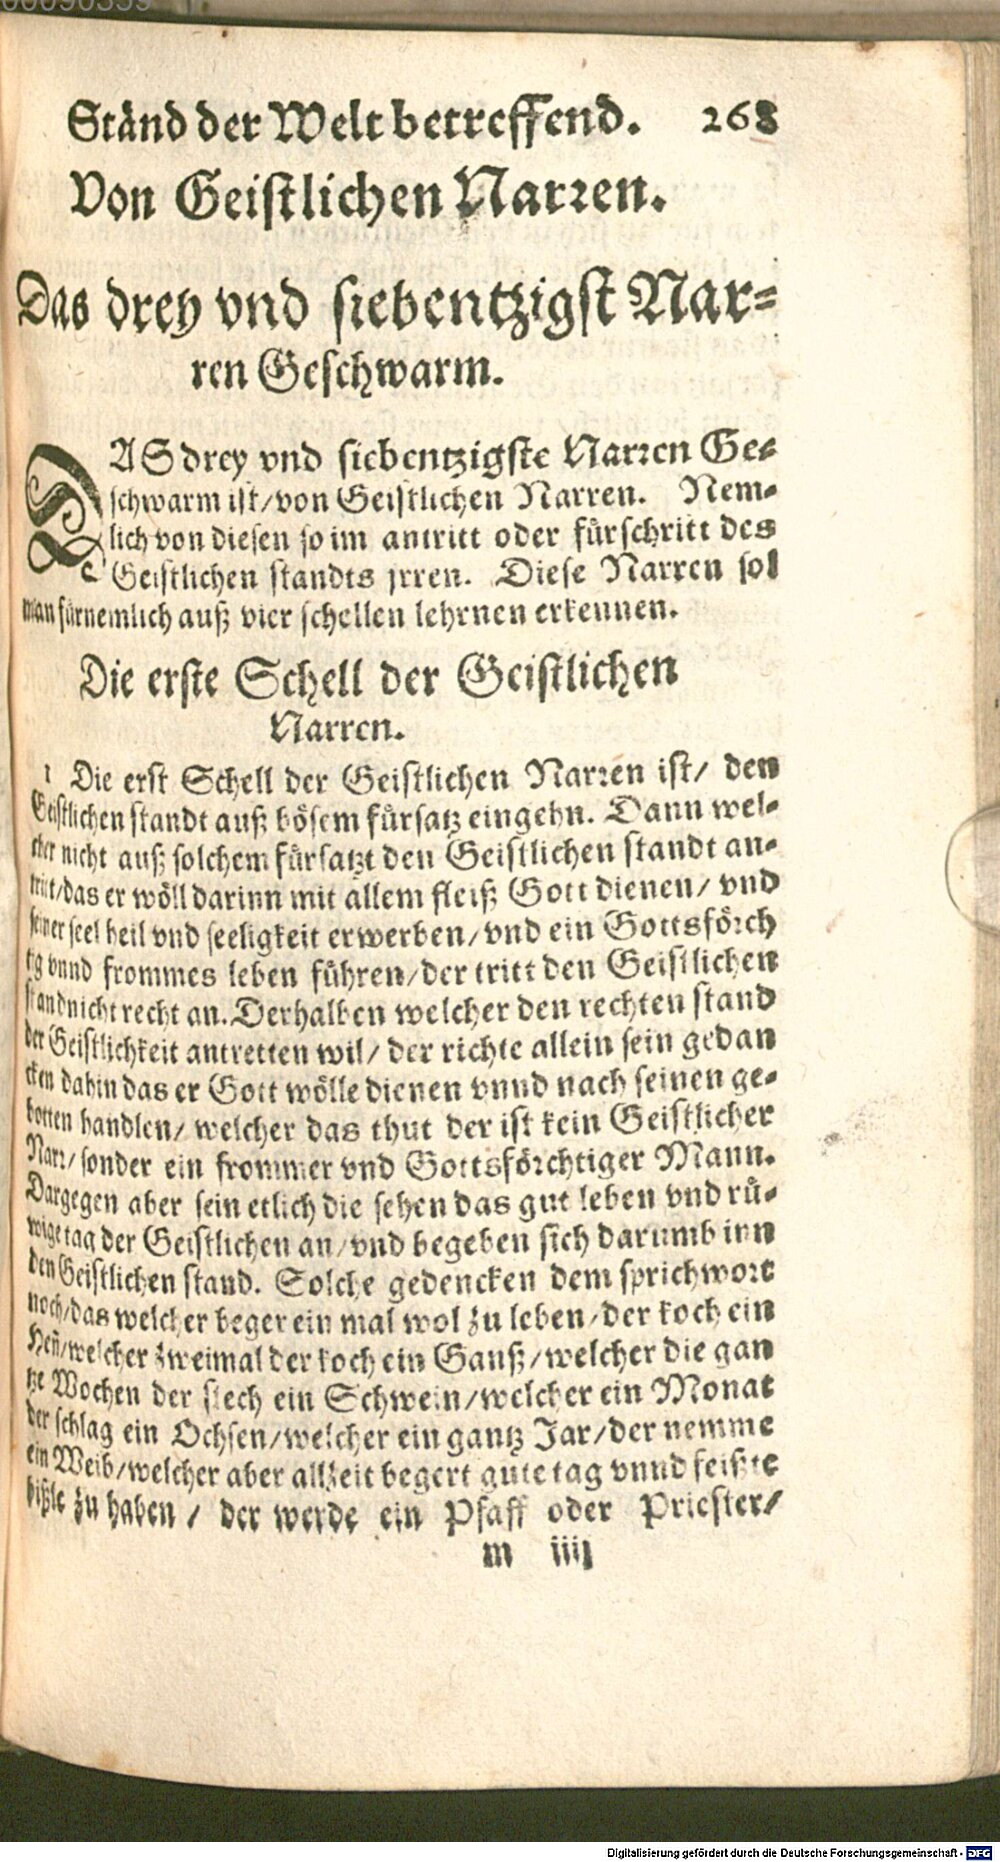 00090359
Ständ der Welt betreffend. 268
Von Geistlichen Narren.
Das drey vnd siebentzigst Nar-
ren Geschwarm.
DAS drey vnd siebentzigste Narren Ge-
schwarm ist/ von Geistlichen Narren. Nem-
lich von diesen so im antritt oder fürschritt des
Geistlichen standts jrren. Diese Narren sol
man fürnemlich auß vier schellen lehrnen erkennen.
Die erste Schell der Geistlichen
Narren.
1 Die erst Schell der Geistlichen Narren ist/ den
Geistlichen standt auß bösem fürsatz eingehn. Dann wel-
cher nicht auß solchem fürsatzt den Geistlichen standt an-
tritt/ das er wöll darinn mit allem fleiß Gott dienen/ vnd
seiner seel heil vnd seeligkeit erwerben/ vnd ein Gottsförch
tig vnnd frommes leben führen/ der tritt den Geistlichen
stand nicht recht an. Derhalben welcher den rechten stand
der Geistlichkeit antretten wil/ der richte allein sein gedan
cken dahin das er Gott wölle dienen vnnd nach seinen ge-
botten handlen/ welcher das thut der ist kein Geistlicher
Narr/ sonder ein frommer vnd Gottsförchtiger Mann.
Dargegen aber sein etlich die sehen das gut leben vnd rü-
wige tag der Geistlichen an/ vnd begeben sich darumb inn
den Geistlichen stand. Solche gedencken dem sprichwort
noch/ das welcher beger ein mal wol zu leben/ der koch ein
Heñ/ welcher zweimal der koch ein Gauß/ welcher die gan
tze Wochen der stech ein Schwein/ welcher ein Monat
der schlag ein Ochsen/ welcher ein gantz Jar/ der nemme
ein Weib/ welcher aber allzeit begert gute tag vnnd feißte
bißle zu haben/ der werde ein Pfaff oder Priester/
m iiij
Digitalisierung gefördert durch die Deutsche Forschungsgemeinschaft - DFG